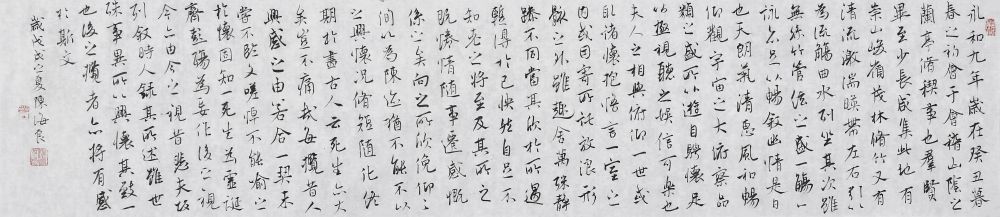 永和九年歲在癸丑暮
春之初會于會稽山陰之
蘭亭脩禊事也羣賢
畢至少長咸集此地有
崇山峻領茂林脩竹又有
清流激湍暎帶左右引以
為流觴曲水列坐其次雖
無絲竹管弦之盛一觴一
詠亦足以暢敘幽情是日
也天朗氣清惠風和暢
仰觀宇宙之大俯察品
類之盛所以遊目騁懷足
以極視聽之娛信可樂也
夫人之相與俯仰一世或
取諸懷抱悟言一室之
內或因寄所託放浪形
骸之外雖趣舍萬殊靜
躁不同當其欣於所遇
蹔得於己快然自足不
知老之將至及其所之
既惓情隨事遷感慨
係之矣向之所欣俛仰之
間以為陳迹猶不能不以
之興懷況脩短隨化終
期於盡古人云死生亦大
矣豈不痛哉每攬昔人
興感之由若合一契未
嘗不臨文嗟悼不能喻之
於懷固知一死生為虛誕
齊彭殤為妄作後之視
今亦由今之視昔悲夫故
列敘時人錄其所述雖世
殊事異所以興懷其致一
也後之攬者亦將有感
於斯文
歲戊戌之夏陳海良